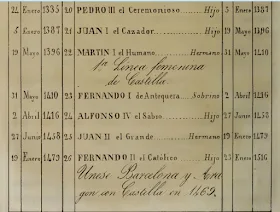 24 Enero 1335 20 PEDRO III el Ceremonioso Hijo 5 Enero 1387
5 Enero 1387 21 JUAN I el Cazador Hijo 19 Mayo 1396
19 Mayo 1396 22 MARTIN I el Humano Hermano 31 Mayo 1410
1ª Línea femenina
de Castilla
31 Mayo 1410 23 FERNANDO I de Antequera Sobrino 2 Abril 1416
2 Abril 1416 24 ALFONSO IV el Sabio Hijo 27 Junio 1458
27 Junio 1458 25 JUAN II el Grande Hermano 19 Enero 1479
19 Enero 1479 26 FERNANDO II el Católico Hijo 23 Enero 1516
Unese Barcelona y Ara
gon con Castilla en 1469.